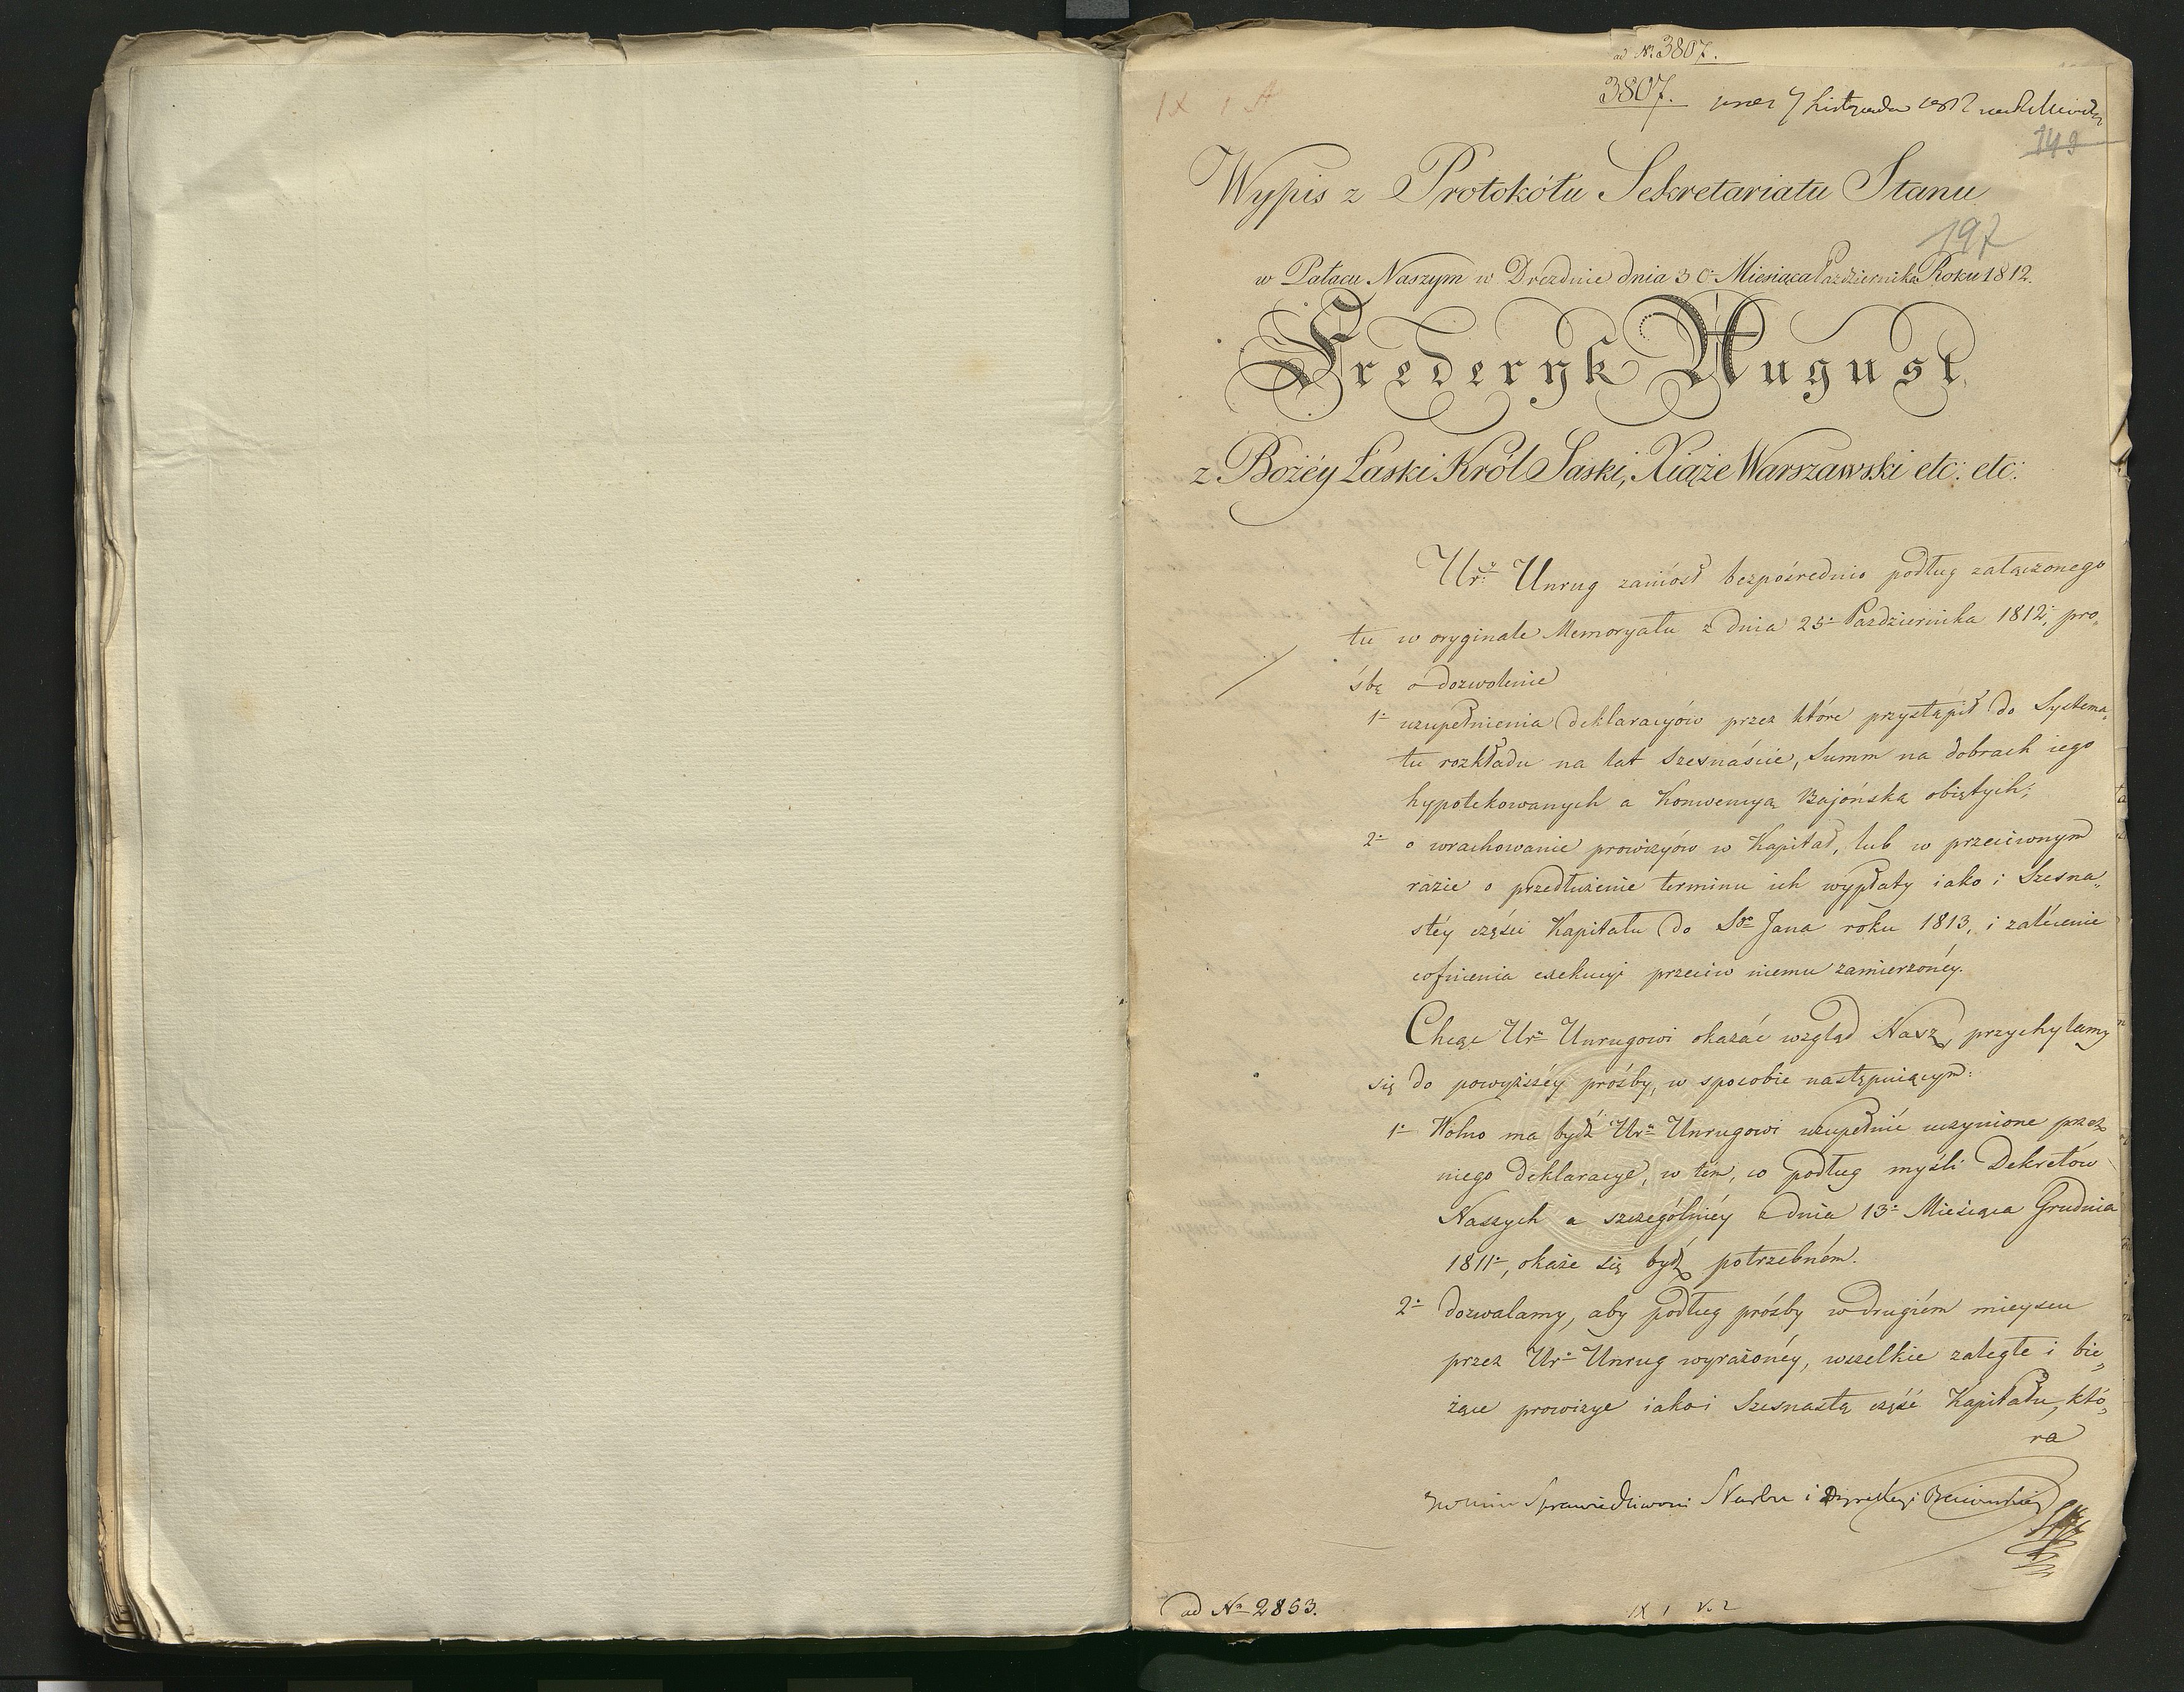 ad N. 3807.
3807. 7 Listopada 1812
IX 1 A
149
Wypis z Protokółu Sekretariatu Stanu
197
w Pałacu Naszym w Dreznie dnia 30. Miesiąca Pazdziernika Roku 1812.
Frederyk August
z Bożéy Łaski Król Saski, Xiąże Warszawski etc: etc:
Ur: Unrug zaniósł bezpośrednio podług załączonego
tu w oryginale Memoryału z dnia 25. Pazdziernika 1812. pro„
śbę o dozwolenie
1. uzupełnienia deklaracyów przez które przystąpił do Systema„
tu rozkładu na lat Szesnáście, Summ na dobrach iego
hypotekowanych a Konwencyą Bajońską obiętych;
2. o wrachowanie prowizyów w Kapitał, lub w przeciwnym
razie o przedłużenie terminu ich wypłaty iako i Szesna„
stéy części Kapitału do Sgo Jana roku 1813. i zalécenie
cofnienia exekucyi przeciw niemu zamierzonéy.
Chcąc Ur. Unrugowi okazać wzgląd Nasz, przychylamy
się do powyższéy prośby, w sposobie następuiącym:
1. Wolno ma bydź Ur. Unrugowi uzupełnić uczynione przez
niego deklaracye, w tém, co podług myśli Dekretów
Naszych a szczególniéy z dnia 13. Miesiąca Grudnia
1811., okaże się bydź potrzebném.
2. Dozwalamy, aby podług prośby w drugiém mieyscu
przez Ur. Unrug wyrażonéy, wszelkie zaległe i bie„
żące prowizye iako i Szesnastą część Kapitału, któ„
ra
Sprawiedliwości Skarbu i Dyrekcyi
ad No 2853.
IX 1 V. 2